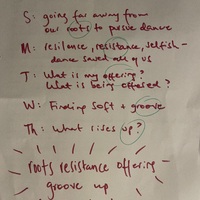 S: going far away from
our roots to pursue dance
M: resilience, resistance, selfish-
dance saved all of us
T: What is my offering?
What is being offered?
W: Finding soft + groove
Th: What rises up?
roots resistance offering -
groove up